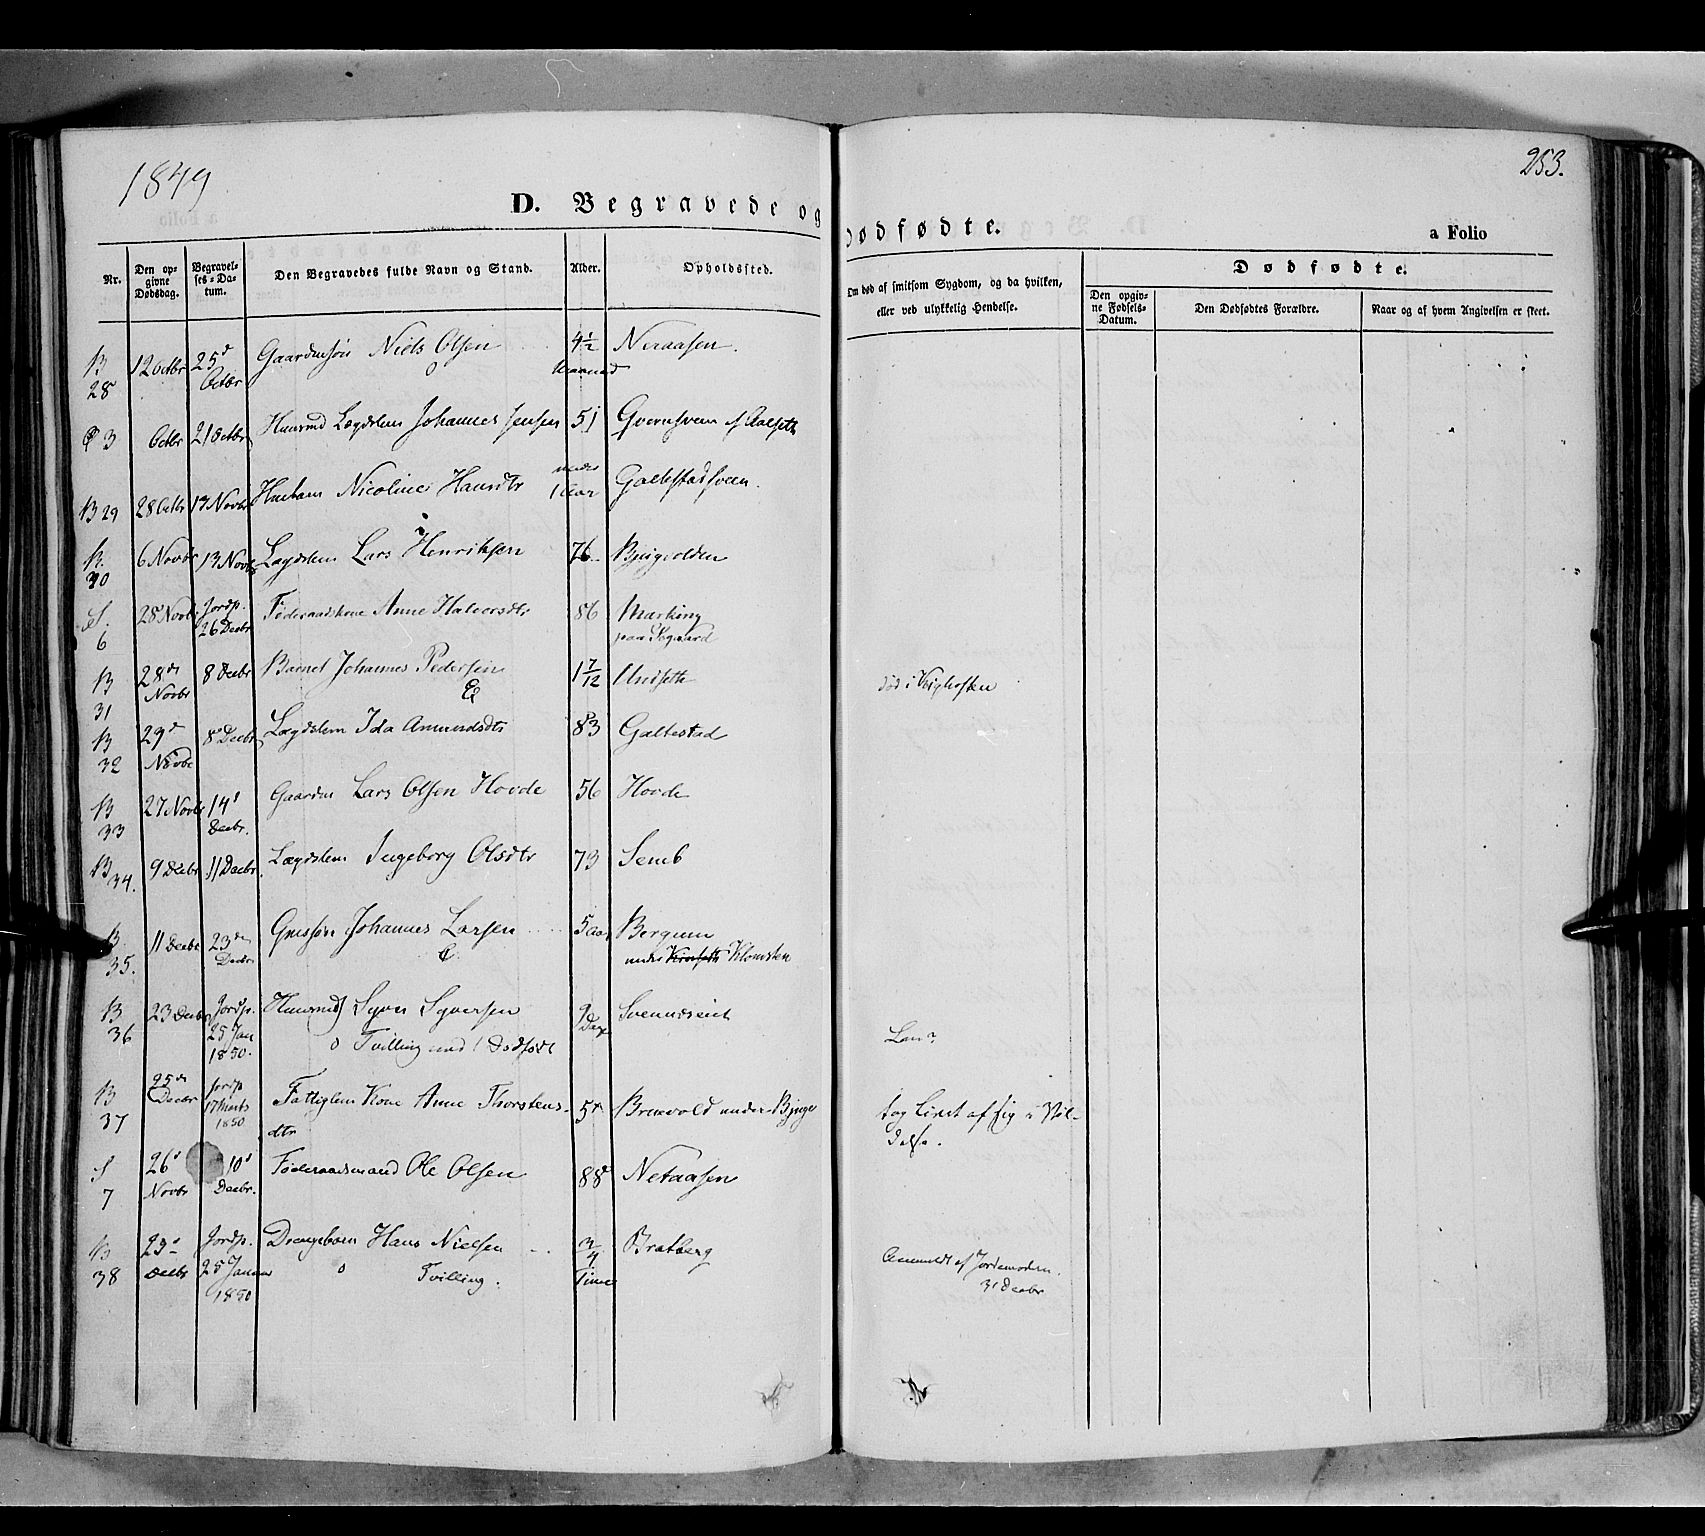 1849
253.
D. Begravede og Dødfødte.
a Folio
Nr.
Den opgivne Dødsdag.
Begravelses-Datum.
Den Begravedes fulde Navn og Stand.
Alder.
Opholdssted.
Om død af smitsom Sygdom, og da hvilken,
eller ved ulykkelig Hendelse.
Dødfødte.
Den opgivne Fødsels-Datum.
Den Dødfødtes Forældre.
Naar og af hvem Angivelsen er skeet.
B 28 12 Octbr 25d Octbr Gaardmsøn Niels Olsen 4½ Maaned Neraasen.
3 Octbr 21 Octbr Huusmd Lægdslem Johannes Jensen 51
B 29 28 Octbr 13 Novbr Nicoline Hansdtr under 1 Aar Galtestadsveen.
B. 30 6 Novbr 13 Novbr Lægdslem Lars Henriksen 76
S. 6 28 Novbr Jordp. 26 Decbr Føderaadskone Anne Halvorsdtr 86
B 31 28de Novbr 8 Decbr Barnet Johannes Pedersen 1 7/12 Undseth
død i
B 32 29d Novbr 8 Decbr Lægdslem Ida Amundsdtr 83 Galtestad
B 33 27 Novbr 14d Decbr. Gaardm Lars Olsen Hovde 56 Hovde
B 34. 9 Decbr 11 Decbr. Lægdslem Ingeborg Olsdtr 73 Semb
B. 35. 11 Decbr 23de Decbr Gmssøn Johannes Larsen 5 aar Bergum
under Klomsten
B 36 23 Decbr Jordp. 25 Jan 1850. Syver Syversen 9 Dage
Tvilling med 1 Dødfødt
B 37 25de Decbr Jordp 17 Marts 1850 Fattiglem Kone Anne Thorstensdtr under Bjuge
tog Livet af sig i Vildelse.
S 7 26d Novbr 10d Decbr. Føderaadsmand Ole Olsen 88 Neraasen
B 38 29d Decbr Jordp. 25 Januar 1850 Drengebarn Hans Nielsen 3/4 Time Bratberg
Tvilling.
Anmeldt af Jordemoderen.
31 Decbr